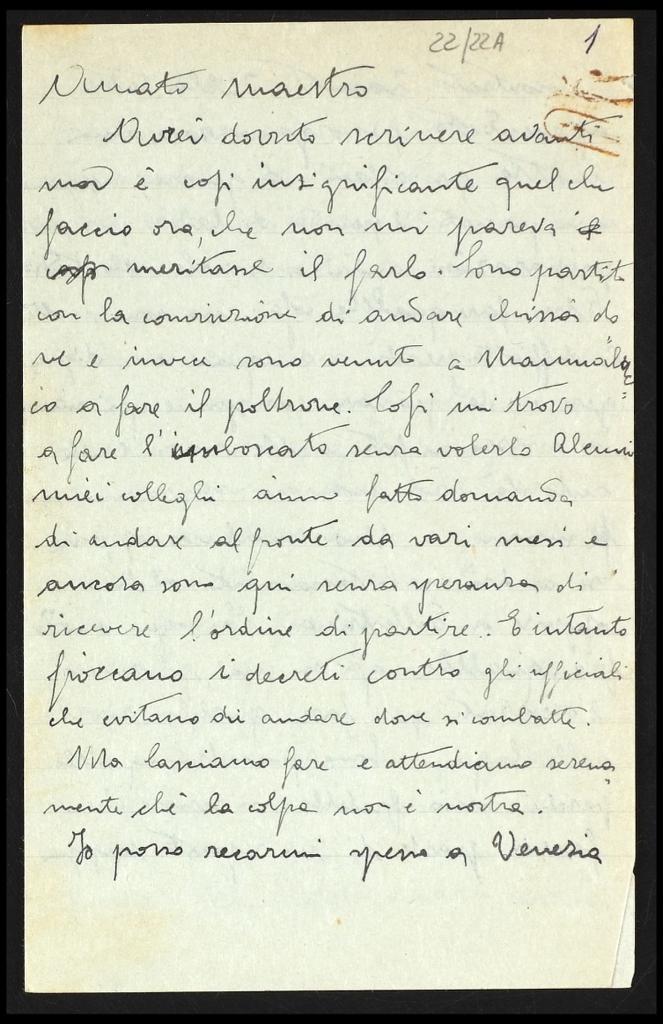 22/22A 1
Amato maestro
Avrei dovuto scrivere avanti
ma è così insignificante quel che
faccio ora, che non mi pareva
meritasse il farlo. Sono partito
con la convinzione di andare chissà do
ve e invece sono venuto a Marmalo
a fare il poltrone. Così mi trovo
a fare l'imboscato senza volerlo Alcuni
miei colleghi ànno fatto domanda
di andare al fronte da vari mesi e
ancora sono qui senza speranza di
ricevere l'ordine di partire. E intanto
fioccano i decreti contro gli ufficiali
che evitano di andare dove si combatte.
Ma lasciamo fare e attendiamo serena
mente chè la colpa non è nostra.
Io posso recarmi spesso a Venezia